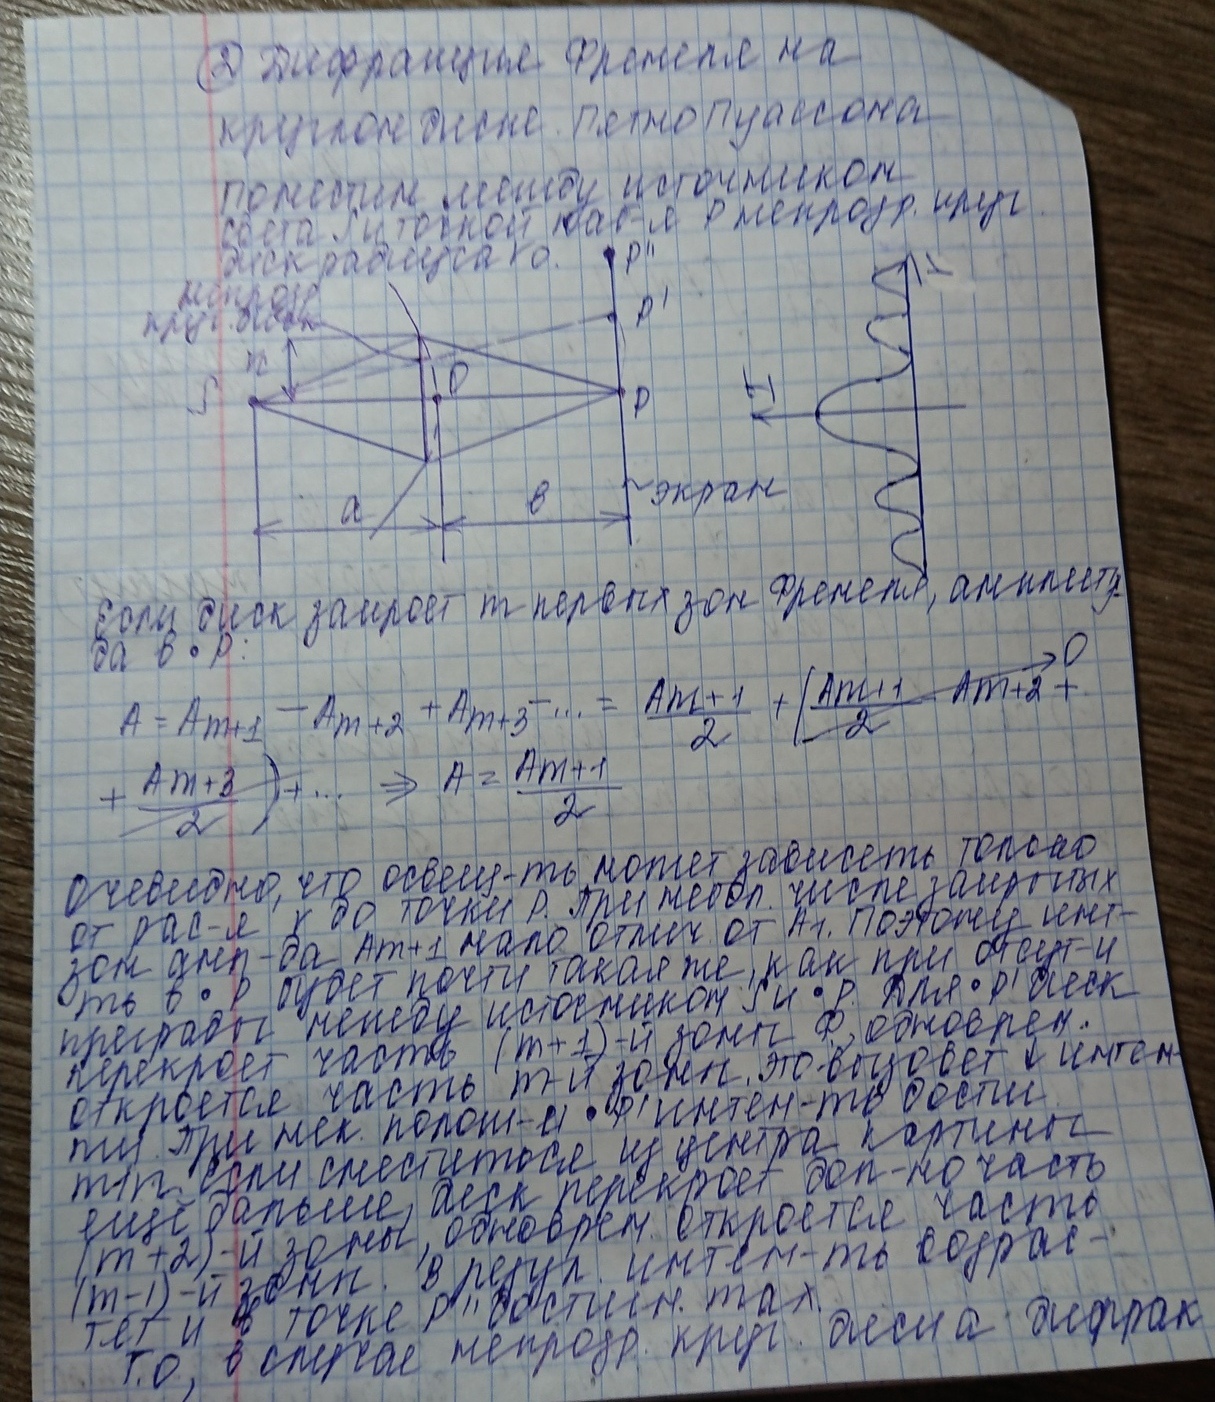 ② Дифракция Френеля на
круглом диске. Пятно Пуассона
Поместим между источником
света S и точкой наб-я P непрозр. круг.
диск радиуса r0.
непрозр.
круг. диск
P''
P'
r
S
O
P
I
a
b
экран
Если диск закроет m первых зон Френеля, амплиту-
да в • P:
A = Am+1 − Am+2 + Am+3 − ... = Am+1/2 + (Am+1/2 − Am+2 + → 0
+ Am+3/2) + ... ⇒ A = Am+1/2
Очевидно, что освещ-ть может зависеть только
от рас-я x до точки P. При небол. числе закрытых
зон амп-да Am+1 мало отлич. от A1. Поэтому инт-
ть в • P будет почти такая же, как при отсут-и
преграды между источником S и • P. Для • P' диск
перекроет часть (m+1)-й зоны Ф, одноврем.
откроется часть m-й зоны. Это вызовет ↓ интен-
ти. При нек. полож-и • P' интен-ть дости
min. Если сместиться из центра картины
ещё дальше, диск перекроет доп-но часть
(m+2)-й зоны, одноврем. откроется часть
(m-1)-й зоны. В резул. интен-ть возрас-
тет и в точке P'' достигн. max.
Т.О, в случае непрозр. круг. диска дифрак